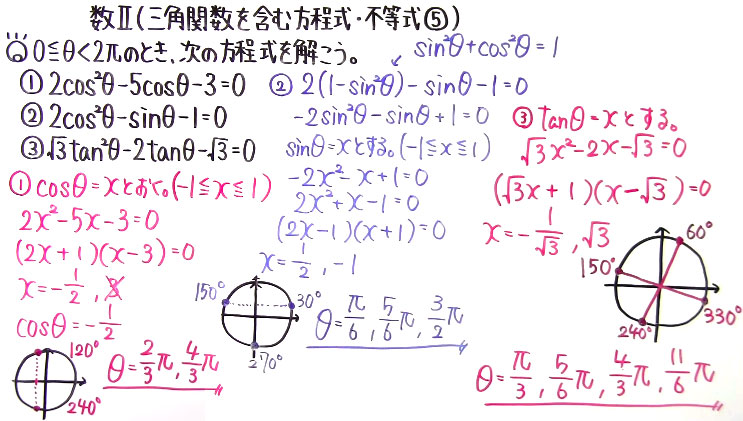 数Ⅱ(三角関数を含む方程式・不等式⑤)
0≦θ<2πのとき、次の方程式を解こう。
① 2cos²θ-5cosθ-3=0
② 2cos²θ-sinθ-1=0
③ √3tan²θ-2tanθ-√3=0
① cosθ=xとおく。(-1≦x≦1)
2x²-5x-3=0
(2x+1)(x-3)=0
x=-1/2, 3
cosθ=-1/2
120°
240°
θ=2/3π, 4/3π
sin²θ+cos²θ=1
② 2(1-sin²θ)-sinθ-1=0
-2sin²θ-sinθ+1=0
sinθ=xとする。(-1≦x≦1)
-2x²-x+1=0
2x²+x-1=0
(2x-1)(x+1)=0
x=1/2, -1
150°
30°
270°
θ=π/6, 5/6π, 3/2π
③ tanθ=xとする。
√3x²-2x-√3=0
(√3x+1)(x-√3)=0
x=-1/√3, √3
60°
150°
330°
240°
θ=π/3, 5/6π, 4/3π, 11/6π